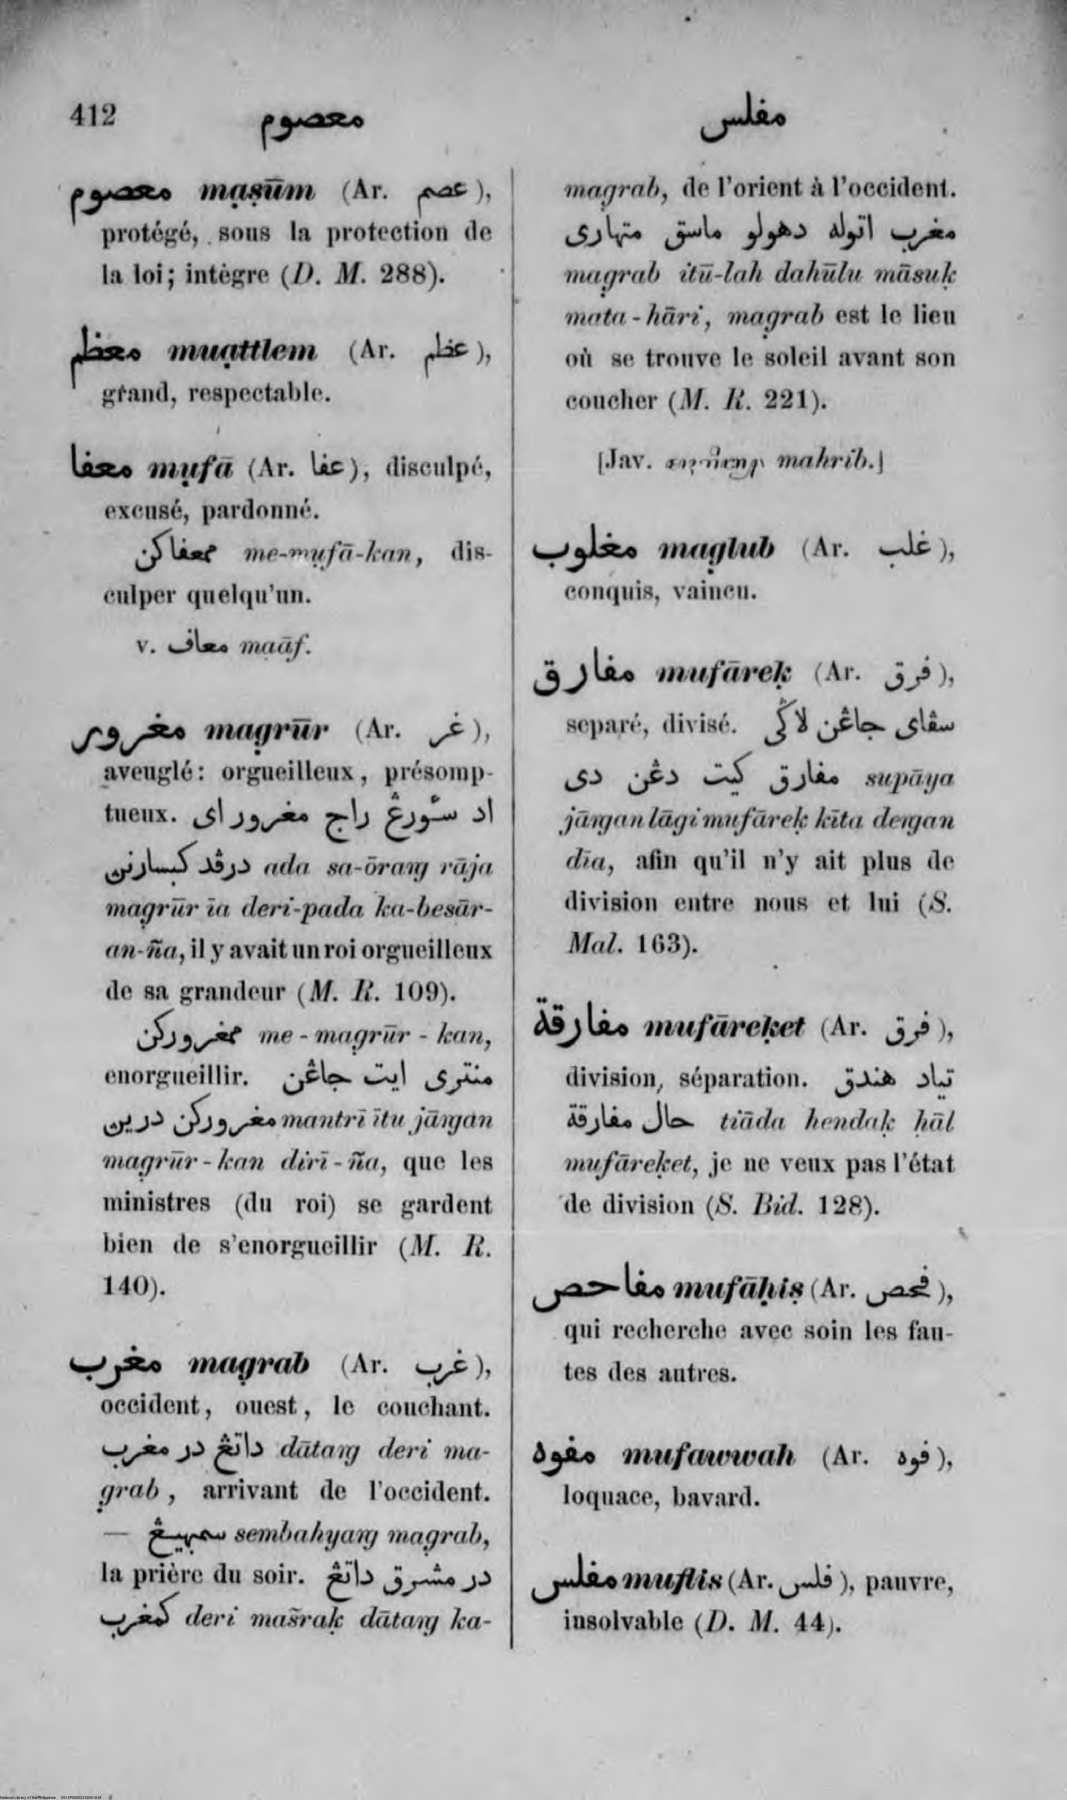 412
معصوم
مفلس
معصوم maṣūm (Ar. عصم),
protégé, sous la protection de
la loi; intègre (D. M. 288).
معظم muạttlem (Ar. عظم),
grand, respectable.
معفا mụfā (Ar. عفا), disculpé,
excusé, pardonné.
ممعفاكن me-mụfā-kan, dis-
culper quelqu'un.
v. معاف mạāf.
مغرور magrūr (Ar. غر),
aveuglé: orgueilleux, présomp-
tueux. اد سّورڠ راج مغرور اى
درڤد كبسارنڽ ada sa-ōraŋ rāja
magrūr īa deri-pada ka-besār-
an-ña, il y avait un roi orgueilleux
de sa grandeur (M. R. 109).
ممغروركن me-magrūr-kan,
enorgueillir. منترى ايت جاڠن
مغروركن درين mantrī ītu jāŋan
magrūr-kan dirī-ña, que les
ministres (du roi) se gardent
bien de s'enorgueillir (M. R.
140).
مغرب magrab (Ar. غرب),
occident, ouest, le couchant.
داتڠ در مغرب dātaŋ deri ma-
grab, arrivant de l'occident.
— سمبهيڠ sembahyaŋ magrab,
la prière du soir. در مشرق داتڠ
كمغرب deri mašraḳ dātaŋ ka-
magrab, de l'orient à l'occident.
مغرب اتوله دهولو ماسق متهارى
magrab itū-lah dahūlu māsuḳ
mata-hāri, magrab est le lieu
où se trouve le soleil avant son
coucher (M. R. 221).
[Jav. mahrib.]
مغلوب maglub (Ar. غلب),
conquis, vaincu.
مفارق mufāreḳ (Ar. فرق),
separé, divisé. سڤاى جاڠن لاݢى
مفارق كيت دڠن دى supāya
jāŋan lāgi mufāreḳ kīta deŋan
dīa, afin qu'il n'y ait plus de
division entre nous et lui (S.
Mal. 163).
مفارقة mufāreḳet (Ar. فرق),
division, séparation. تياد هندق
حال مفارقة tiāda hendaḳ ḥāl
mufāreḳet, je ne veux pas l'état
de division (S. Bid. 128).
مفاحص mufāḥiṣ (Ar. فحص),
qui recherche avec soin les fau-
tes des autres.
مفوه mufawwah (Ar. فوه),
loquace, bavard.
مفلس muflis (Ar. فلس), pauvre,
insolvable (D. M. 44).